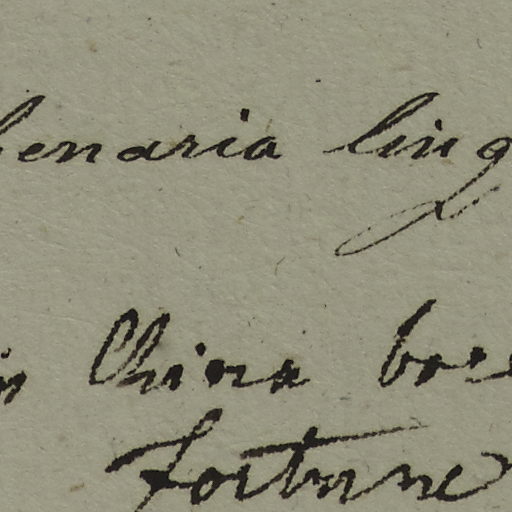 benaria ling
in China bore
Fortune